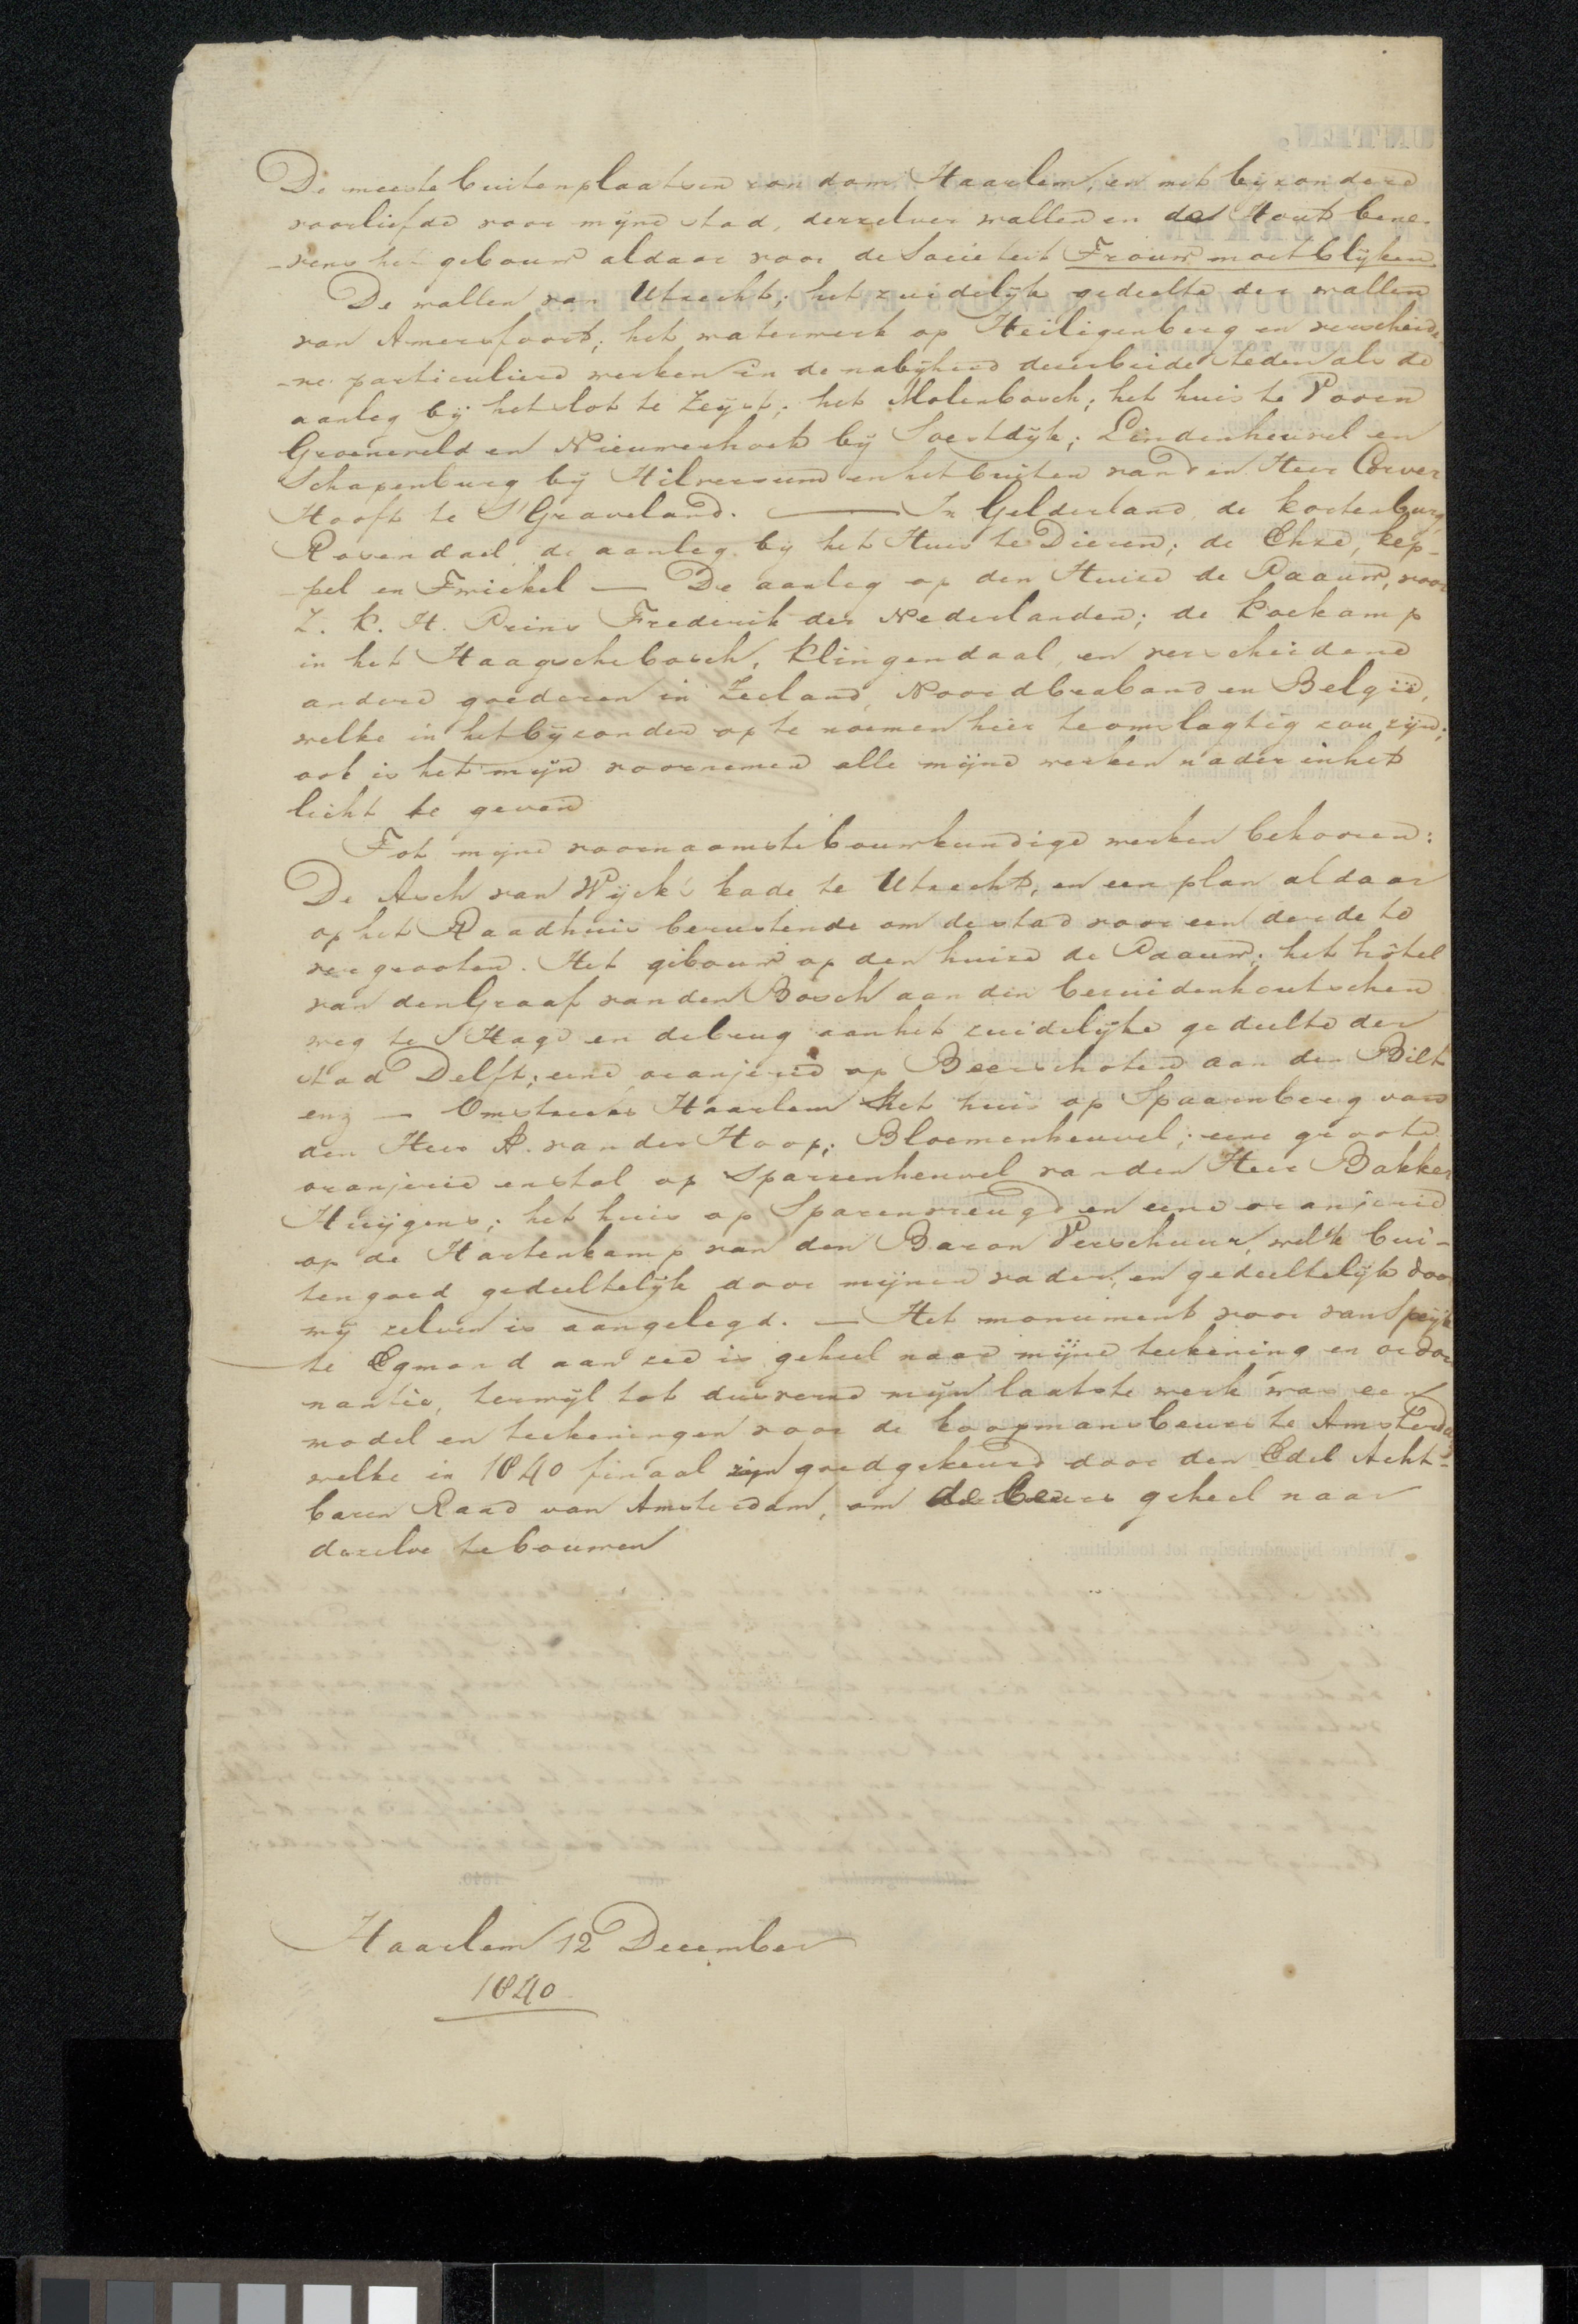 De meeste buitenplaatsen rondom Haarlem, en met bezondere
voorliefde voor mijne stad, derzelver wallen en de Hout bene-
-vens het gebouw aldaar voor de Societeit Trouw moet blijken
De wallen van Utrecht; het zuidelijk gedeelte der wallen
van Amersfoort; het waterwerk op Heiligenberg en verscheide
-ne particuliere werken in de nabijheid dezer beide steden als de
aanleg bij het slot te Zeijst; het Molenbosch; het huis te Voorn
Groeneveld en Nieuwerhoek bij Soestdijk; Lindenheuvel en
Schapenburg bij Hilversum en het buiten van den Heer Corver
Hooft te S'Graveland. — In Gelderland, de kortenburg,
Rosendaal, de aanleg bij het Huis te Dieren; de Ehze, kep-
-pel en Twickel — De aanleg op den Huize de Paauw, voor
Z. K. H. Prins Frederik der Nederlanden; de koekamp
in het Haagsche bosch, Klingendaal, en verscheidene
andere goederen in Zeeland, Noordbraband en België,
welke in het bijzonder op te noemen hier te omslagtig zou zijn;
ook is het mijn voornemen alle mijne werken nader in het
licht te geven
Tot mijne voornaamste bouwkundige werken behooren:
De Asch van Wijck's kade te Utrecht, en een plan aldaar
op het Raadhuis berustende om de stad voor een derde te
vergrooten. Het gebouw op den huize de Paauw; het hôtel
van den Graaf van den Bosch aan den bezuidenhoutschen
weg te S'Hage en de brug aan het zuidelijke gedeelte der
stad Delft; eene oranjerie op Beerschoten aan den Bilt
enz — Omstreeks Haarlem het huis op Spaarnberg van
den Heer A. van der Hoop; Bloemenheuvel; eene groote
oranjerie en stal op Sparrenheuvel van den Heer Bakker
Huijgens; het huis op Sparenvreugd en eene oranjerie
op de Hartenkamp van den Baron Verschuur, welk bui-
tengoed gedeeltelijk door mijnen vader, en gedeeltelijk door
mij zelven is aangelegd. — Het monument voor van Speijk
te Egmond aan zee is geheel naar mijne teekening en ordon
nantie, terwijl tot dusverre mijn laatste werk was een
model en teekeningen voor de koopmansbeurs te Amsterdam
welke in 1840 finaal zijn goedgekeurd door den Edel Acht-
baren Raad van Amsterdam, om de beurs geheel naar
dezelve te bouwen
Haarlem 12 December
1840